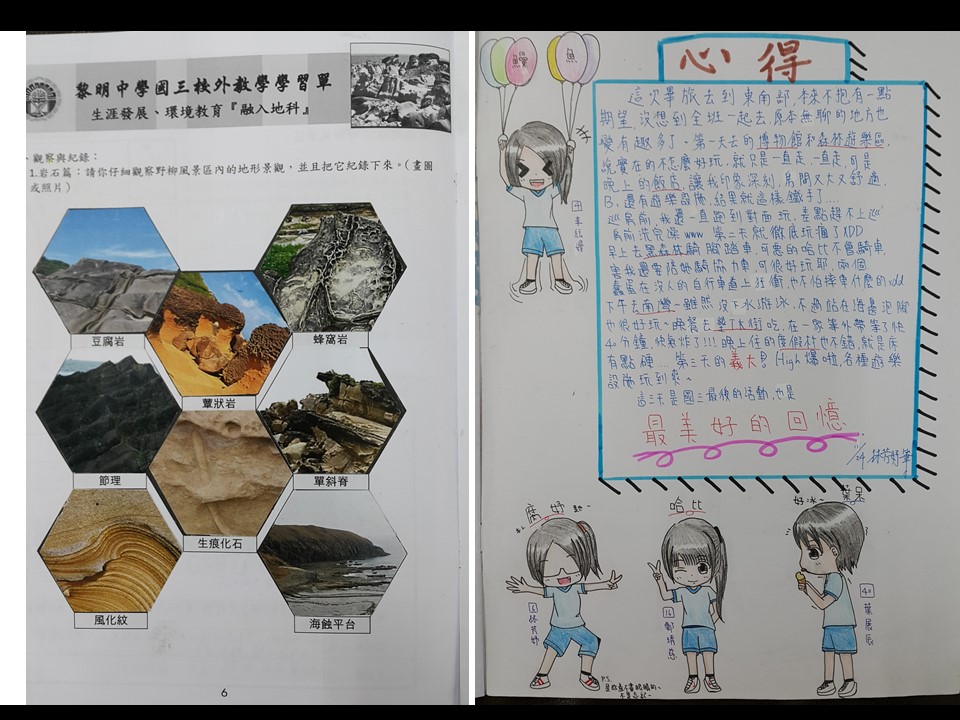 黎明中學國三校外教學學習單
生涯發展、環境教育『融入地科』
、觀察與紀錄：
1.岩石篇：請你仔細觀察野柳風景區內的地形景觀，並且把它紀錄下來。(畫圖
或照片)
豆腐岩
蜂窩岩
蕈狀岩
節理
單斜脊
生痕化石
風化紋
海蝕平台
6
鱷
魚
心得
這次畢旅去到東南部,本來不抱有一點
期望,沒想到全班一起去原本無聊的地方也
變有趣多了。第一天去的博物館和森林遊樂區,
說實在的不怎麼好玩,就只是一直走、一直走,可是
晚上的飯店,讓我印象深刻,房間又大又舒適,
B1還有遊樂設施,結果就這樣鐵手了....
巡房前,我還一直跑到對面玩,差點趕不上巡
房前洗完澡www 第二天就徹底玩瘋了XDD
早上去黑森林騎腳踏車,可惡的哈比不會騎車,
害我還要陪她騎協力車,可很好玩耶,兩個
蠢蛋在沒人的自行車道上狂衝,也不怕摔車什麼的xdd
下午去南灣~雖然沒下水游泳,不過站在海邊泡腳
也很好玩~晚餐去墾丁大街吃,在一家筆外帶等了快
40分鐘,快氣炸了!!!晚上住的度假村也不錯,就是床
有點硬... 第三天的義大! High爆啦,各種遊樂
設施玩到爽~
這三天是國三最後的活動,也是
最美好的回憶
11/24 林芳妤筆
腐妤
哈比
好冰~
葉呆
16
鄭靖慈
40
葉展辰
P.S.